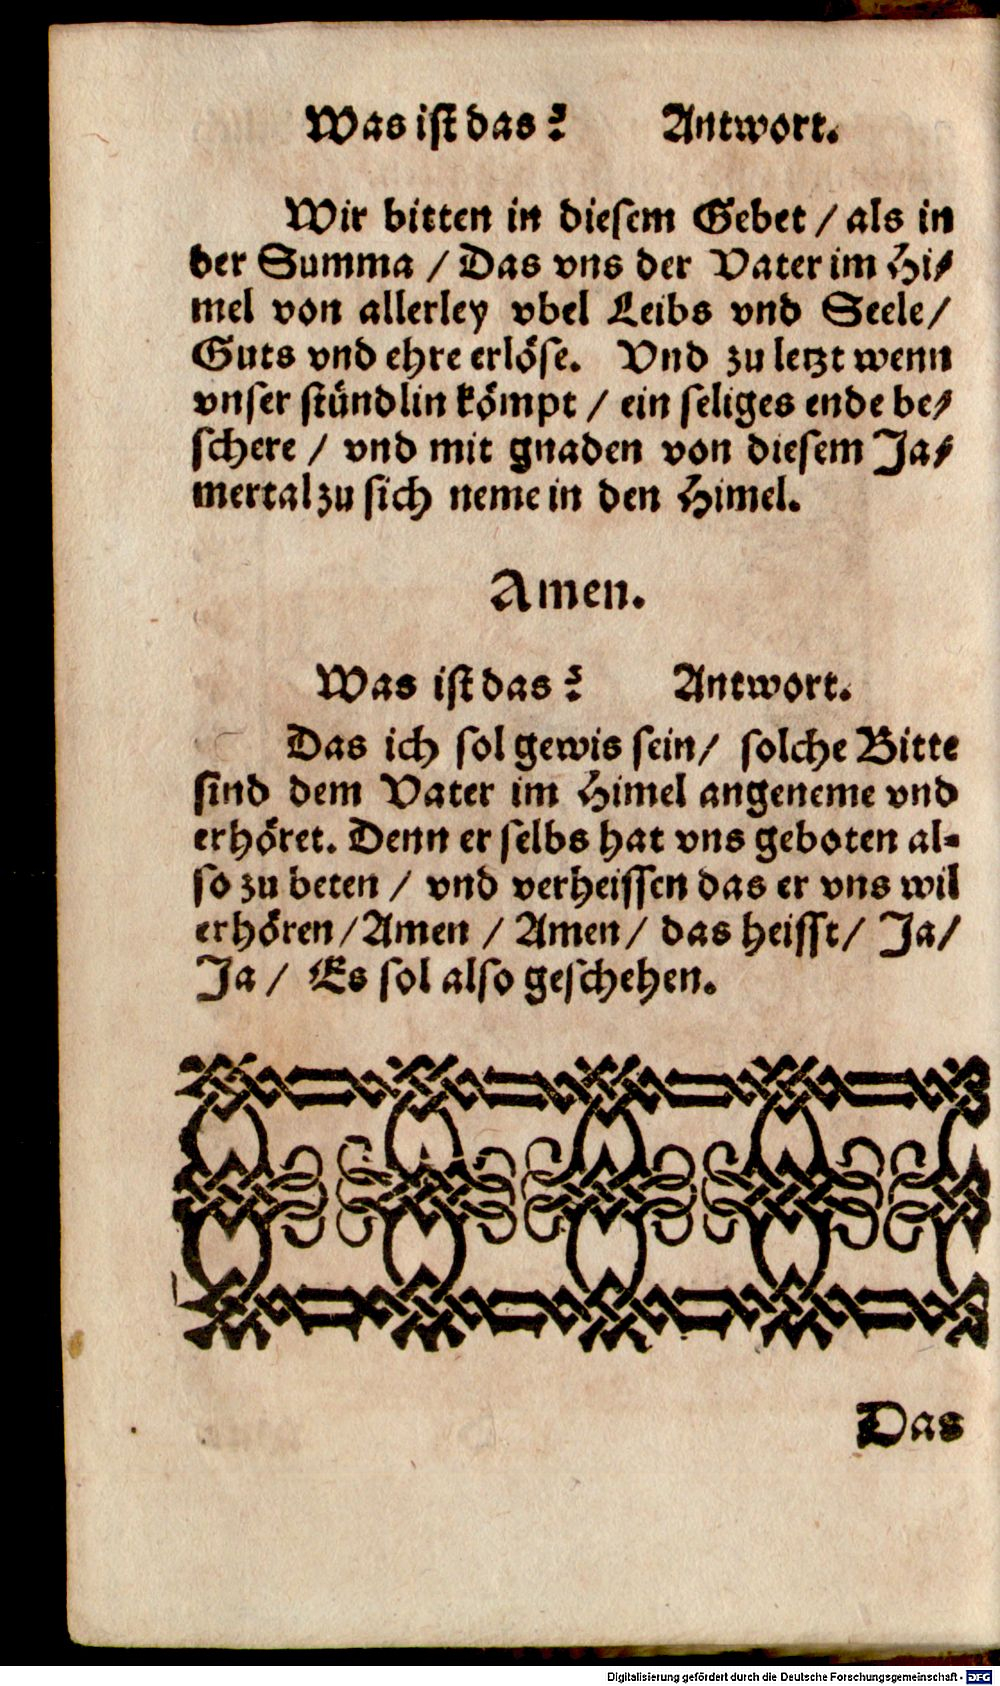 Was ist das? Antwort.
Wir bitten in diesem Gebet / als in
der Summa / Das vns der Vater im Hi-
mel von allerley vbel Leibs vnd Seele /
Guts vnd ehre erlöse. Vnd zu letzt wenn
vnser stündlin kömpt / ein seliges ende be-
schere / vnd mit gnaden von diesem Ja-
mertal zu sich neme in den Himel.
Amen.
Was ist das? Antwort.
Das ich sol gewis sein / solche Bitte
sind dem Vater im Himel angeneme vnd
erhöret. Denn er selbs hat vns geboten al-
so zu beten / vnd verheissen das er vns wil
erhören / Amen / Amen / das heisst / Ja /
Ja / Es sol also geschehen.
Das
Digitalisierung gefördert durch die Deutsche Forschungsgemeinschaft - DFG